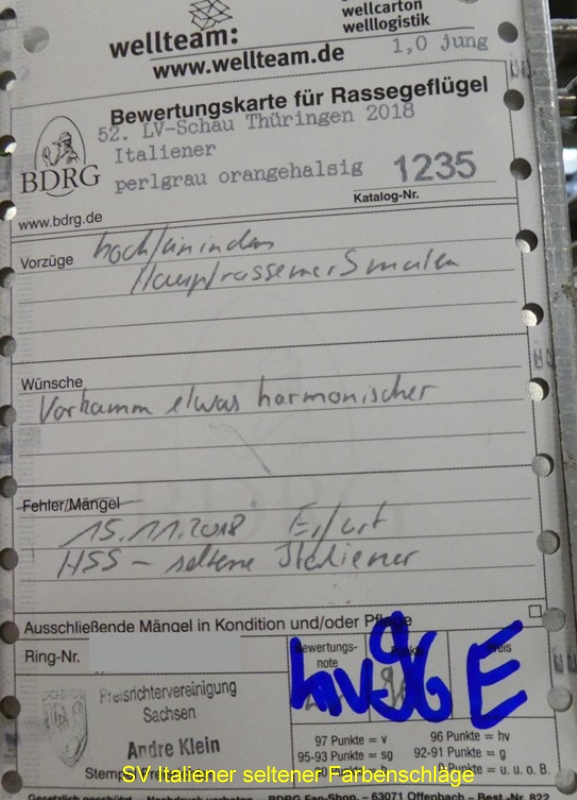 wellteam:
wellcarton
welllogistik
www.wellteam.de
1,0 jung
Bewertungskarte für Rassegeflügel
52. LV-Schau Thüringen 2018
Italiener
perlgrau orangehalsig
1235
BDRG
Katalog-Nr.
www.bdrg.de
Vorzüge hochfein in den
Hauptrassemerkmalen
Wünsche
Vorkamm etwas harmonischer
Fehler/Mängel
15.11.2018 Erfurt
HSS - seltene Italiener
Ausschließende Mängel in Kondition und/oder Pflege
Ring-Nr.
Bewertungs-
note
hv 96 E
Preisrichtervereinigung
Sachsen
Andre Klein
97 Punkte = v 96 Punkte = hv
95-93 Punkte = sg 92-91 Punkte = g
Punkte = u. u. o. B.
SV Italiener seltener Farbenschläge
Gesetzlich geschützt - Nachdruck verboten - BDRG Fan-Shop. - 63071 Offenbach - Best.-Nr. 822